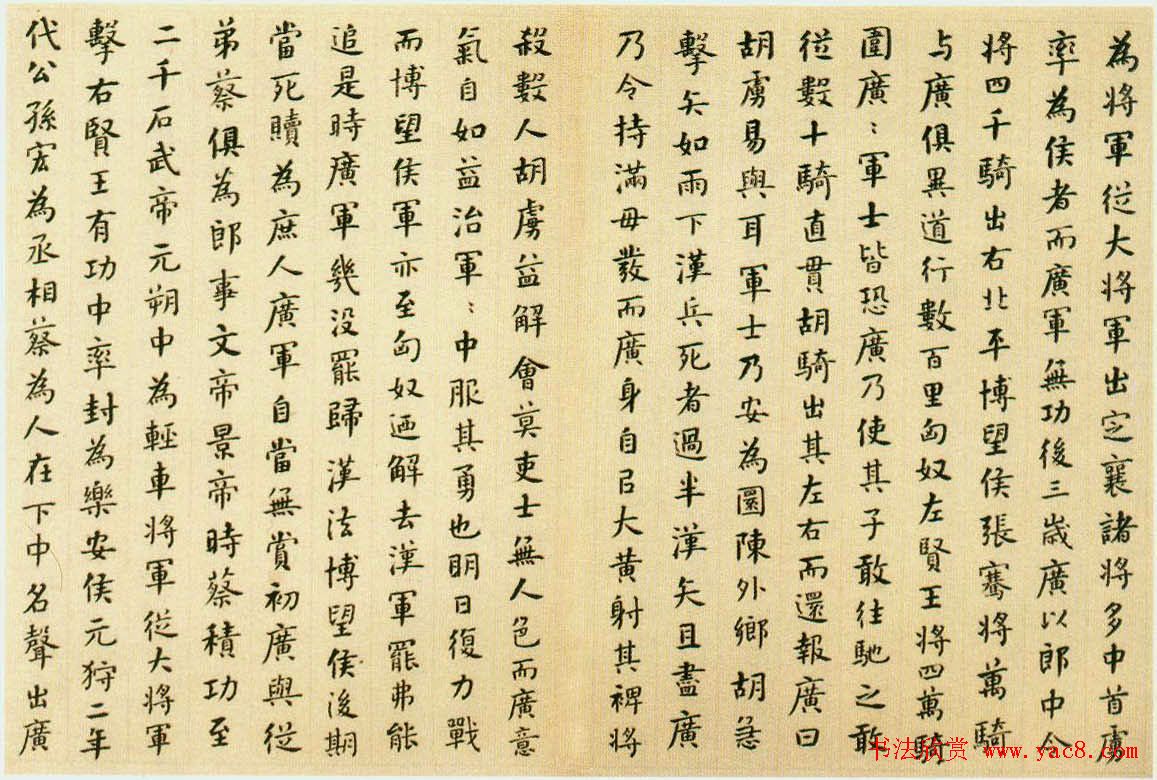 為將軍從大將軍出定襄諸將多中首虜
率為侯者而廣軍無功後三歲廣以郎中令
將四千騎出右北平博望侯張騫將萬騎
与廣俱異道行數百里匈奴左賢王將四萬騎
圍廣〻軍士皆恐廣乃使其子敢往馳之敢
從數十騎直貫胡騎出其左右而還報廣曰
胡虜易與耳軍士乃安為圜陳外鄉胡急
擊矢如雨下漢兵死者過半漢矢且盡廣
乃令持滿毋發而廣身自㠯大黄射其裨將
殺數人胡虜益解會莫吏士無人色而廣意
氣自如益治軍〻中服其勇也明日復力戰
而博望侯軍亦至匈奴迺解去漢軍罷弗能
追是時廣軍幾没罷歸漢法博望侯後期
當死贖為庶人廣軍自當無賞初廣與從
弟蔡俱為郎事文帝景帝時蔡積功至
二千石武帝元朔中為輕車將軍從大將軍
擊右賢王有功中率封為樂安侯元狩二年
代公孫宏為丞相蔡為人在下中名聲出廣
书法欣赏 www.yac8.com